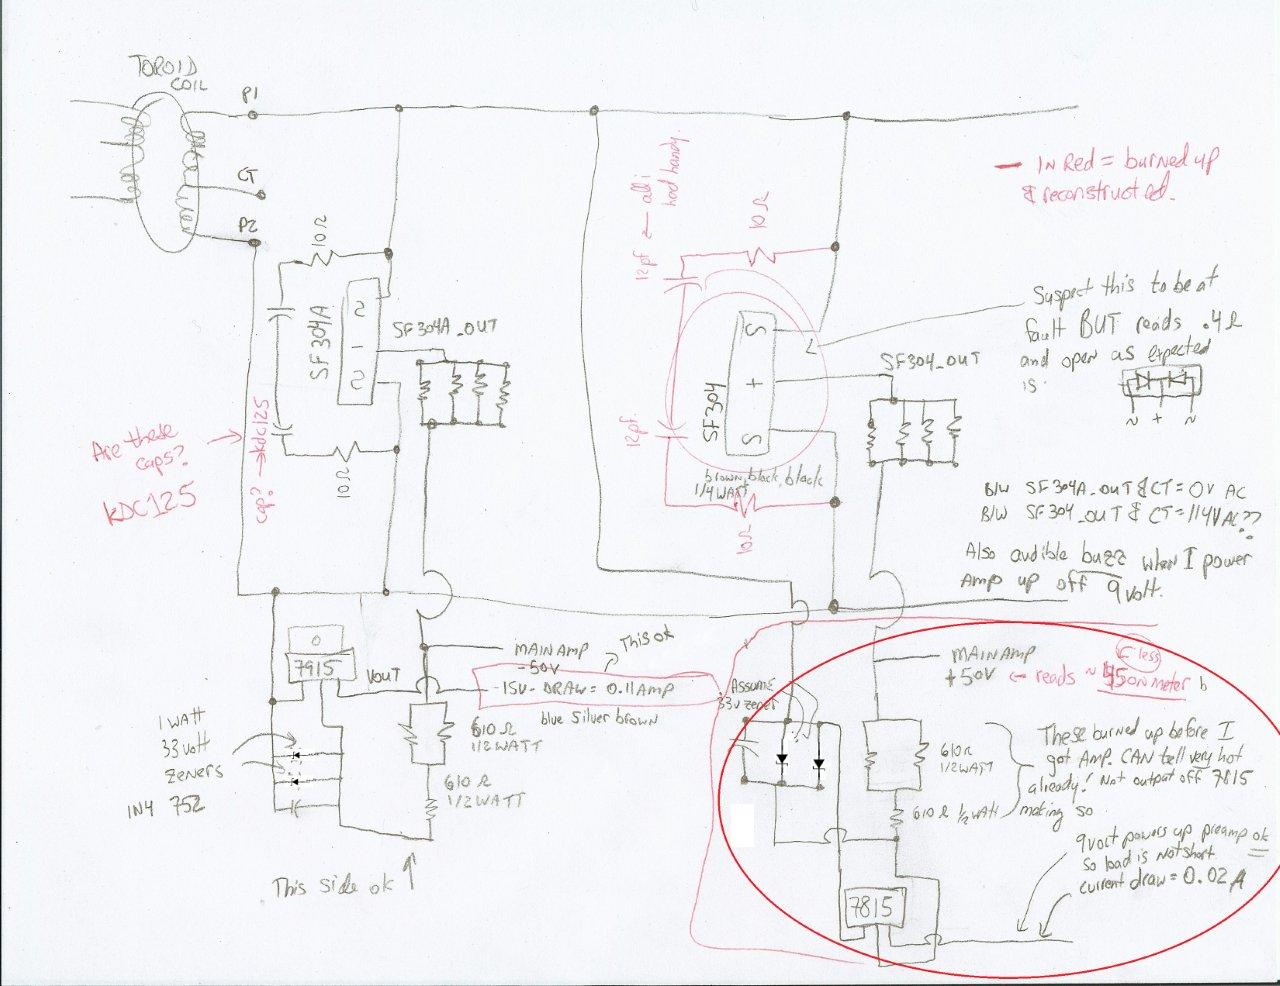 TOROID
COIL
P1
CT
P2
10Ω
SF304A
SF304A_OUT
10Ω
Are these
caps?
KDC125
cap? → KDC125
12pf ← all i
had handy.
10Ω
12pf.
SF304
+
brown, black, black
1/4 WATT
10Ω
SF304_OUT
- IN Red = burned up
& reconstructed.
Suspect this to be at
fault BUT reads .4Ω
and open as expected
is.
~ + ~
B/W SF304A_OUT & CT = 0V AC
B/W SF304_OUT & CT = 114V AC??
Also audible buzz when I power
Amp up off 9volt.
7915
VOUT
MAIN AMP
-50V
This ok
-15V- DRAW = 0.11AMP
blue silver brown
610Ω
1/2WATT
610Ω
1/2WATT
1 WATT
33 volt
zeners
1N4 752
This side ok
Assume
33v zener
MAIN AMP
+50V ← reads ~
ON meter
← less
610Ω
1/2WATT
610Ω 1/2WAtt
These burned up before I
got AMP. CAN tell very hot
already! Not output off 7815
making so
7815
9volt powers up preamp ok
so load is not short.
current draw = 0.02A